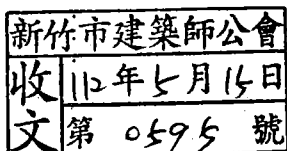 新竹市建築師公會
收文
112年5月15日
第 0595 號